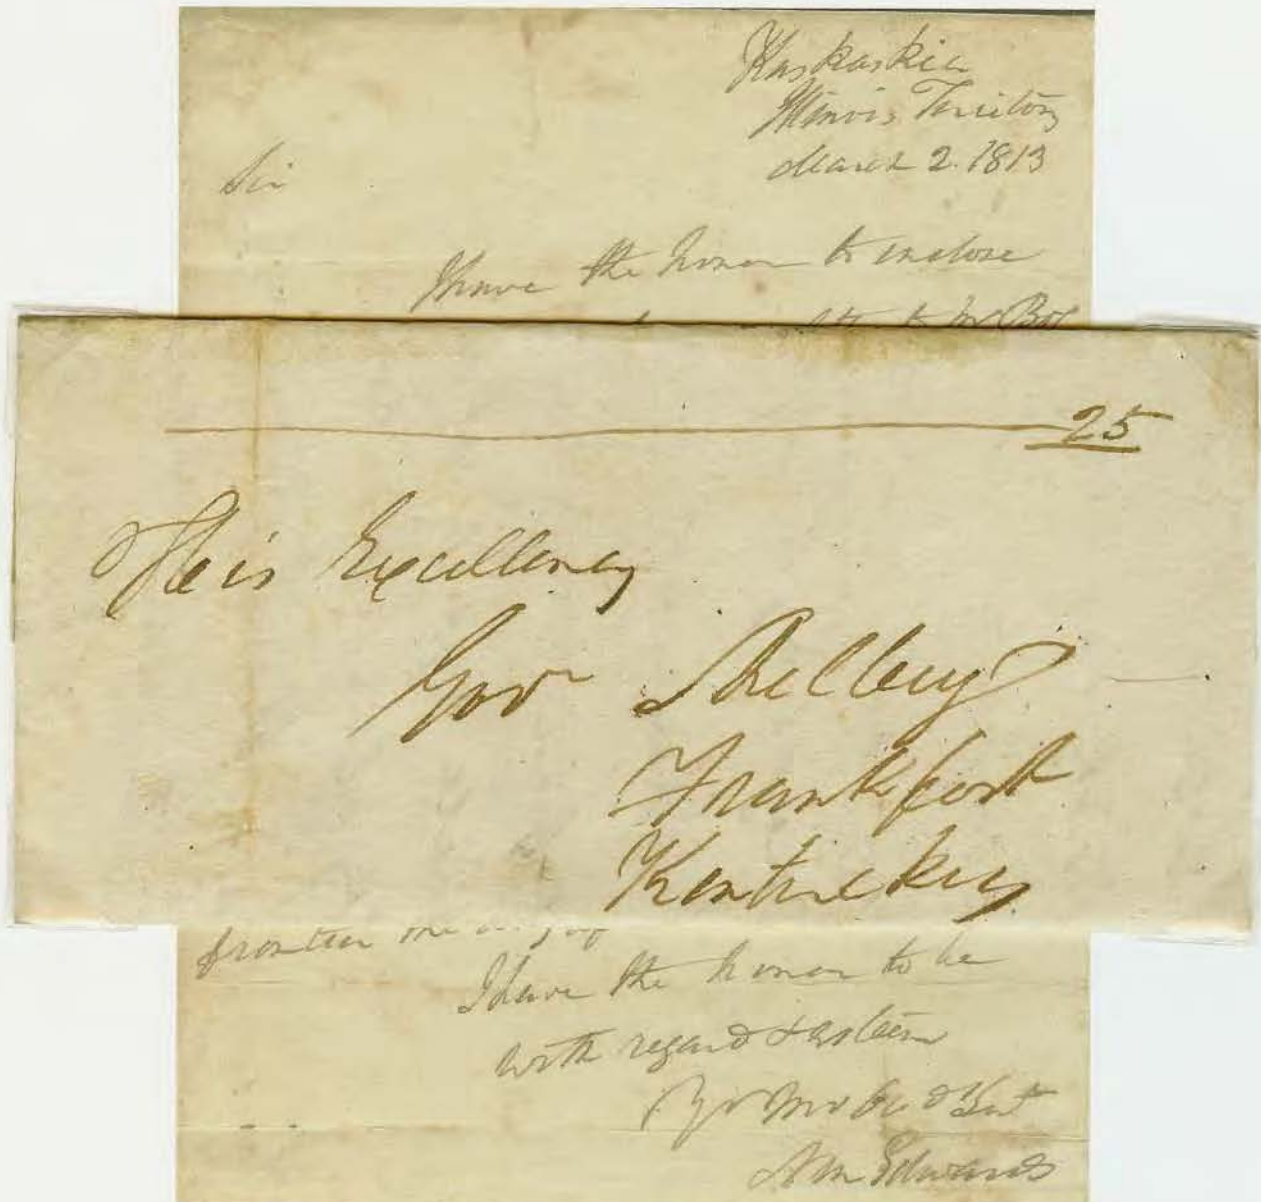 Kaskaskia
Illinois Territory
March 2. 1813
Sir
I have the honor to enclose
to Mr
25
His Excellency
Govr Shelby
Frankfort
Kentuckey
frontier
I have the honor to be
with regard & esteem
Yr Mo Ob Svt
Nin Edwards